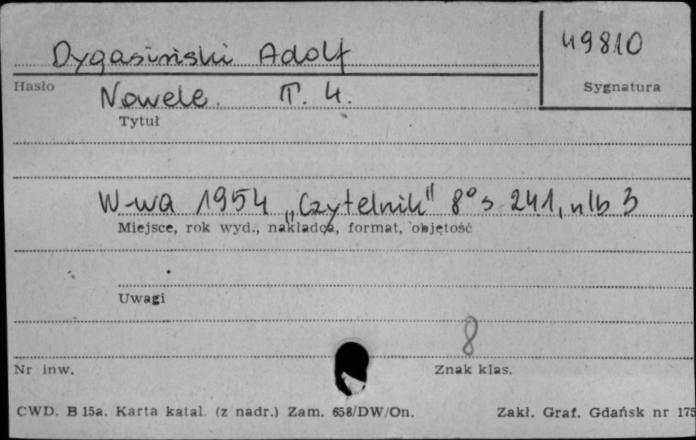 Dygasiński Adolf
49810
Hasło
Sygnatura
Nowele. T. 4.
Tytuł
W-wa 1954 „Czytelnik" 8° s. 241, nlb 3
Miejsce, rok wyd., nakładca, format, objętość
Uwagi
8
Nr inw.
Znak klas.
CWD. B 15a. Karta katal. (z nadr.) Zam. 658/DW/On.
Zakł. Graf. Gdańsk nr 175